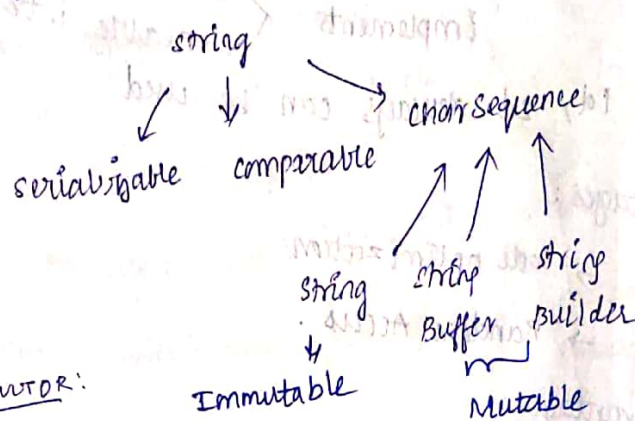 string
serializable
comparable
charsequence
String
string
Buffer
string
Builder
Immutable
Mutable